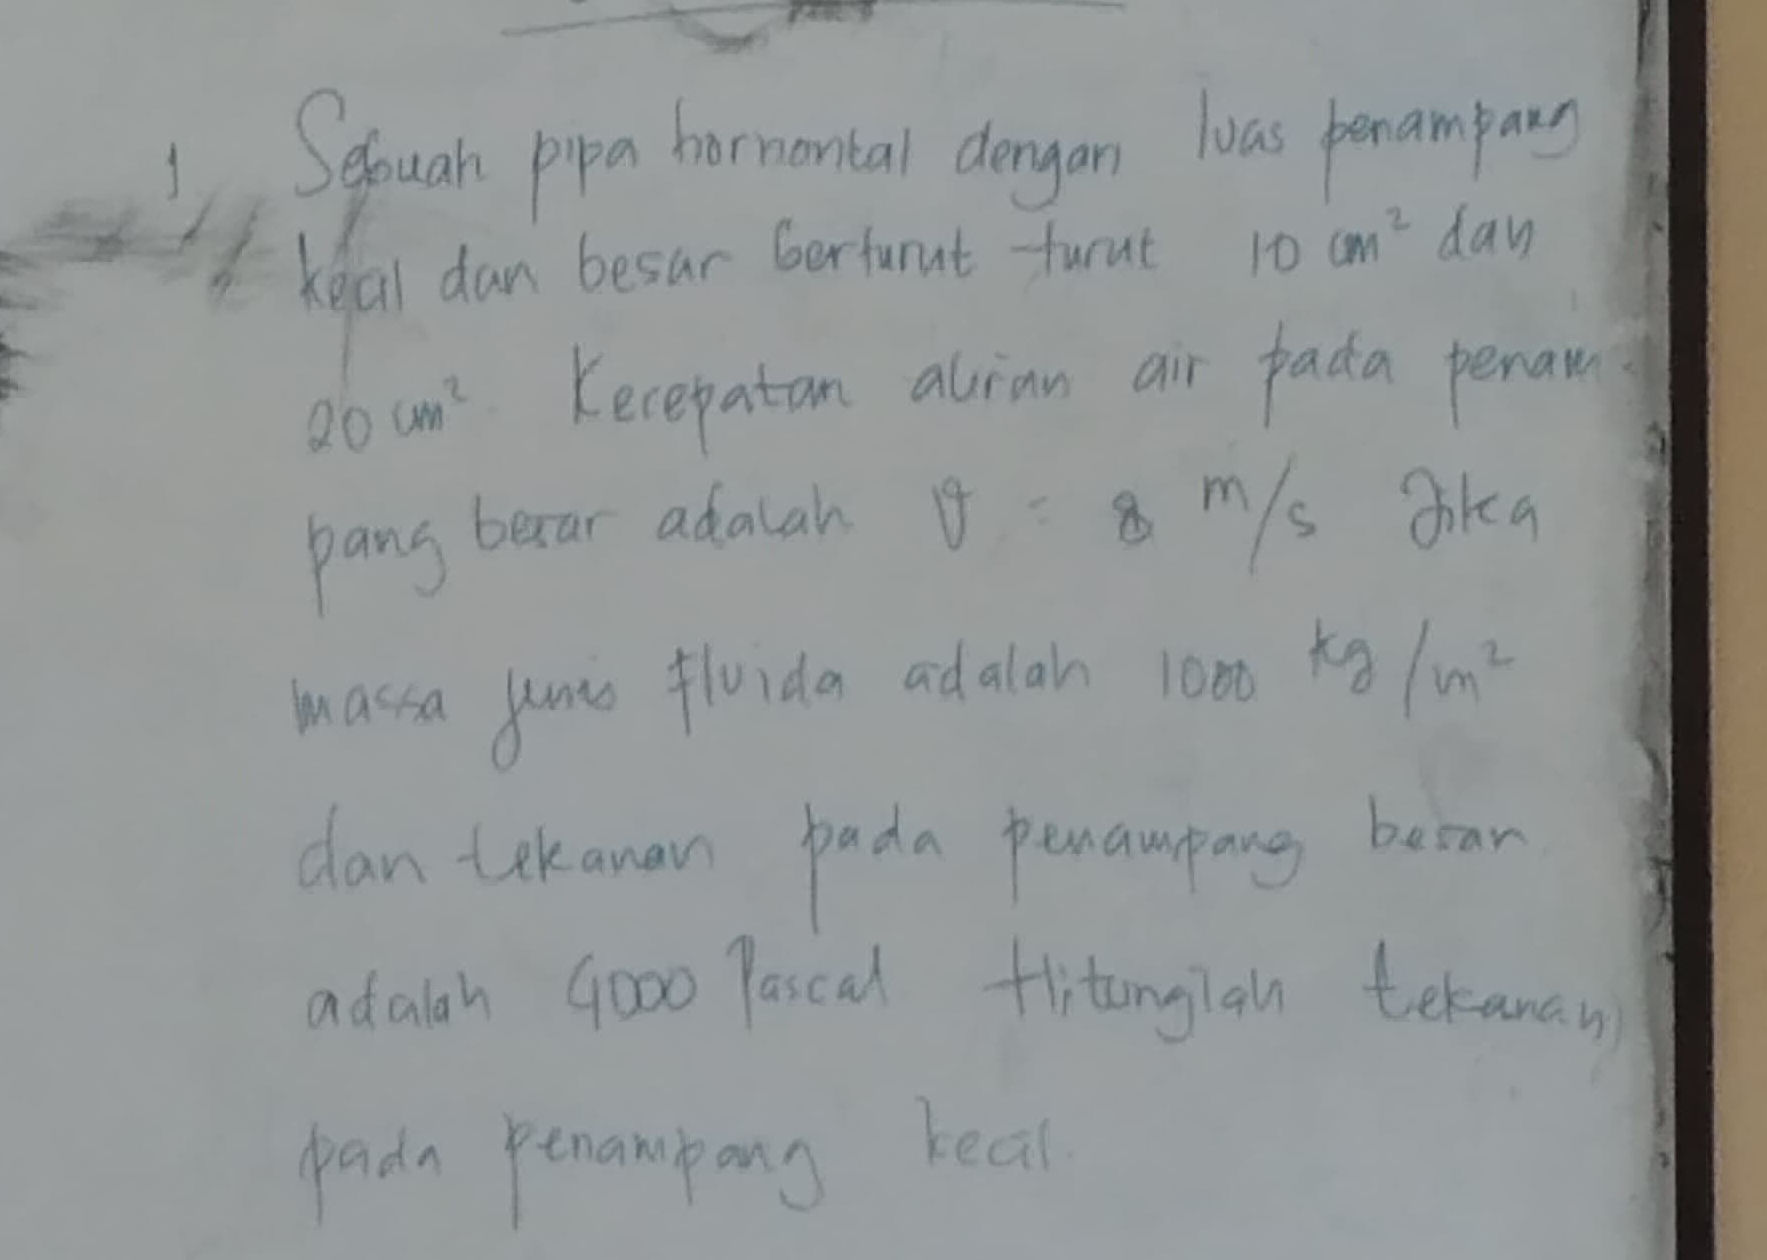 1 Sebuah pipa hornontal dengan luas penampang
kecil dan besar berturut-turut 10 cm² dan
20 cm². Kecepatan aliran air pada penam-
pang besar adalah v = 8 m/s Jika
massa jenis fluida adalah 1000 kg/m²
dan tekanan pada penampang besar
adalah 4000 Pascal Hitunglah tekanan
pada penampang kecil.